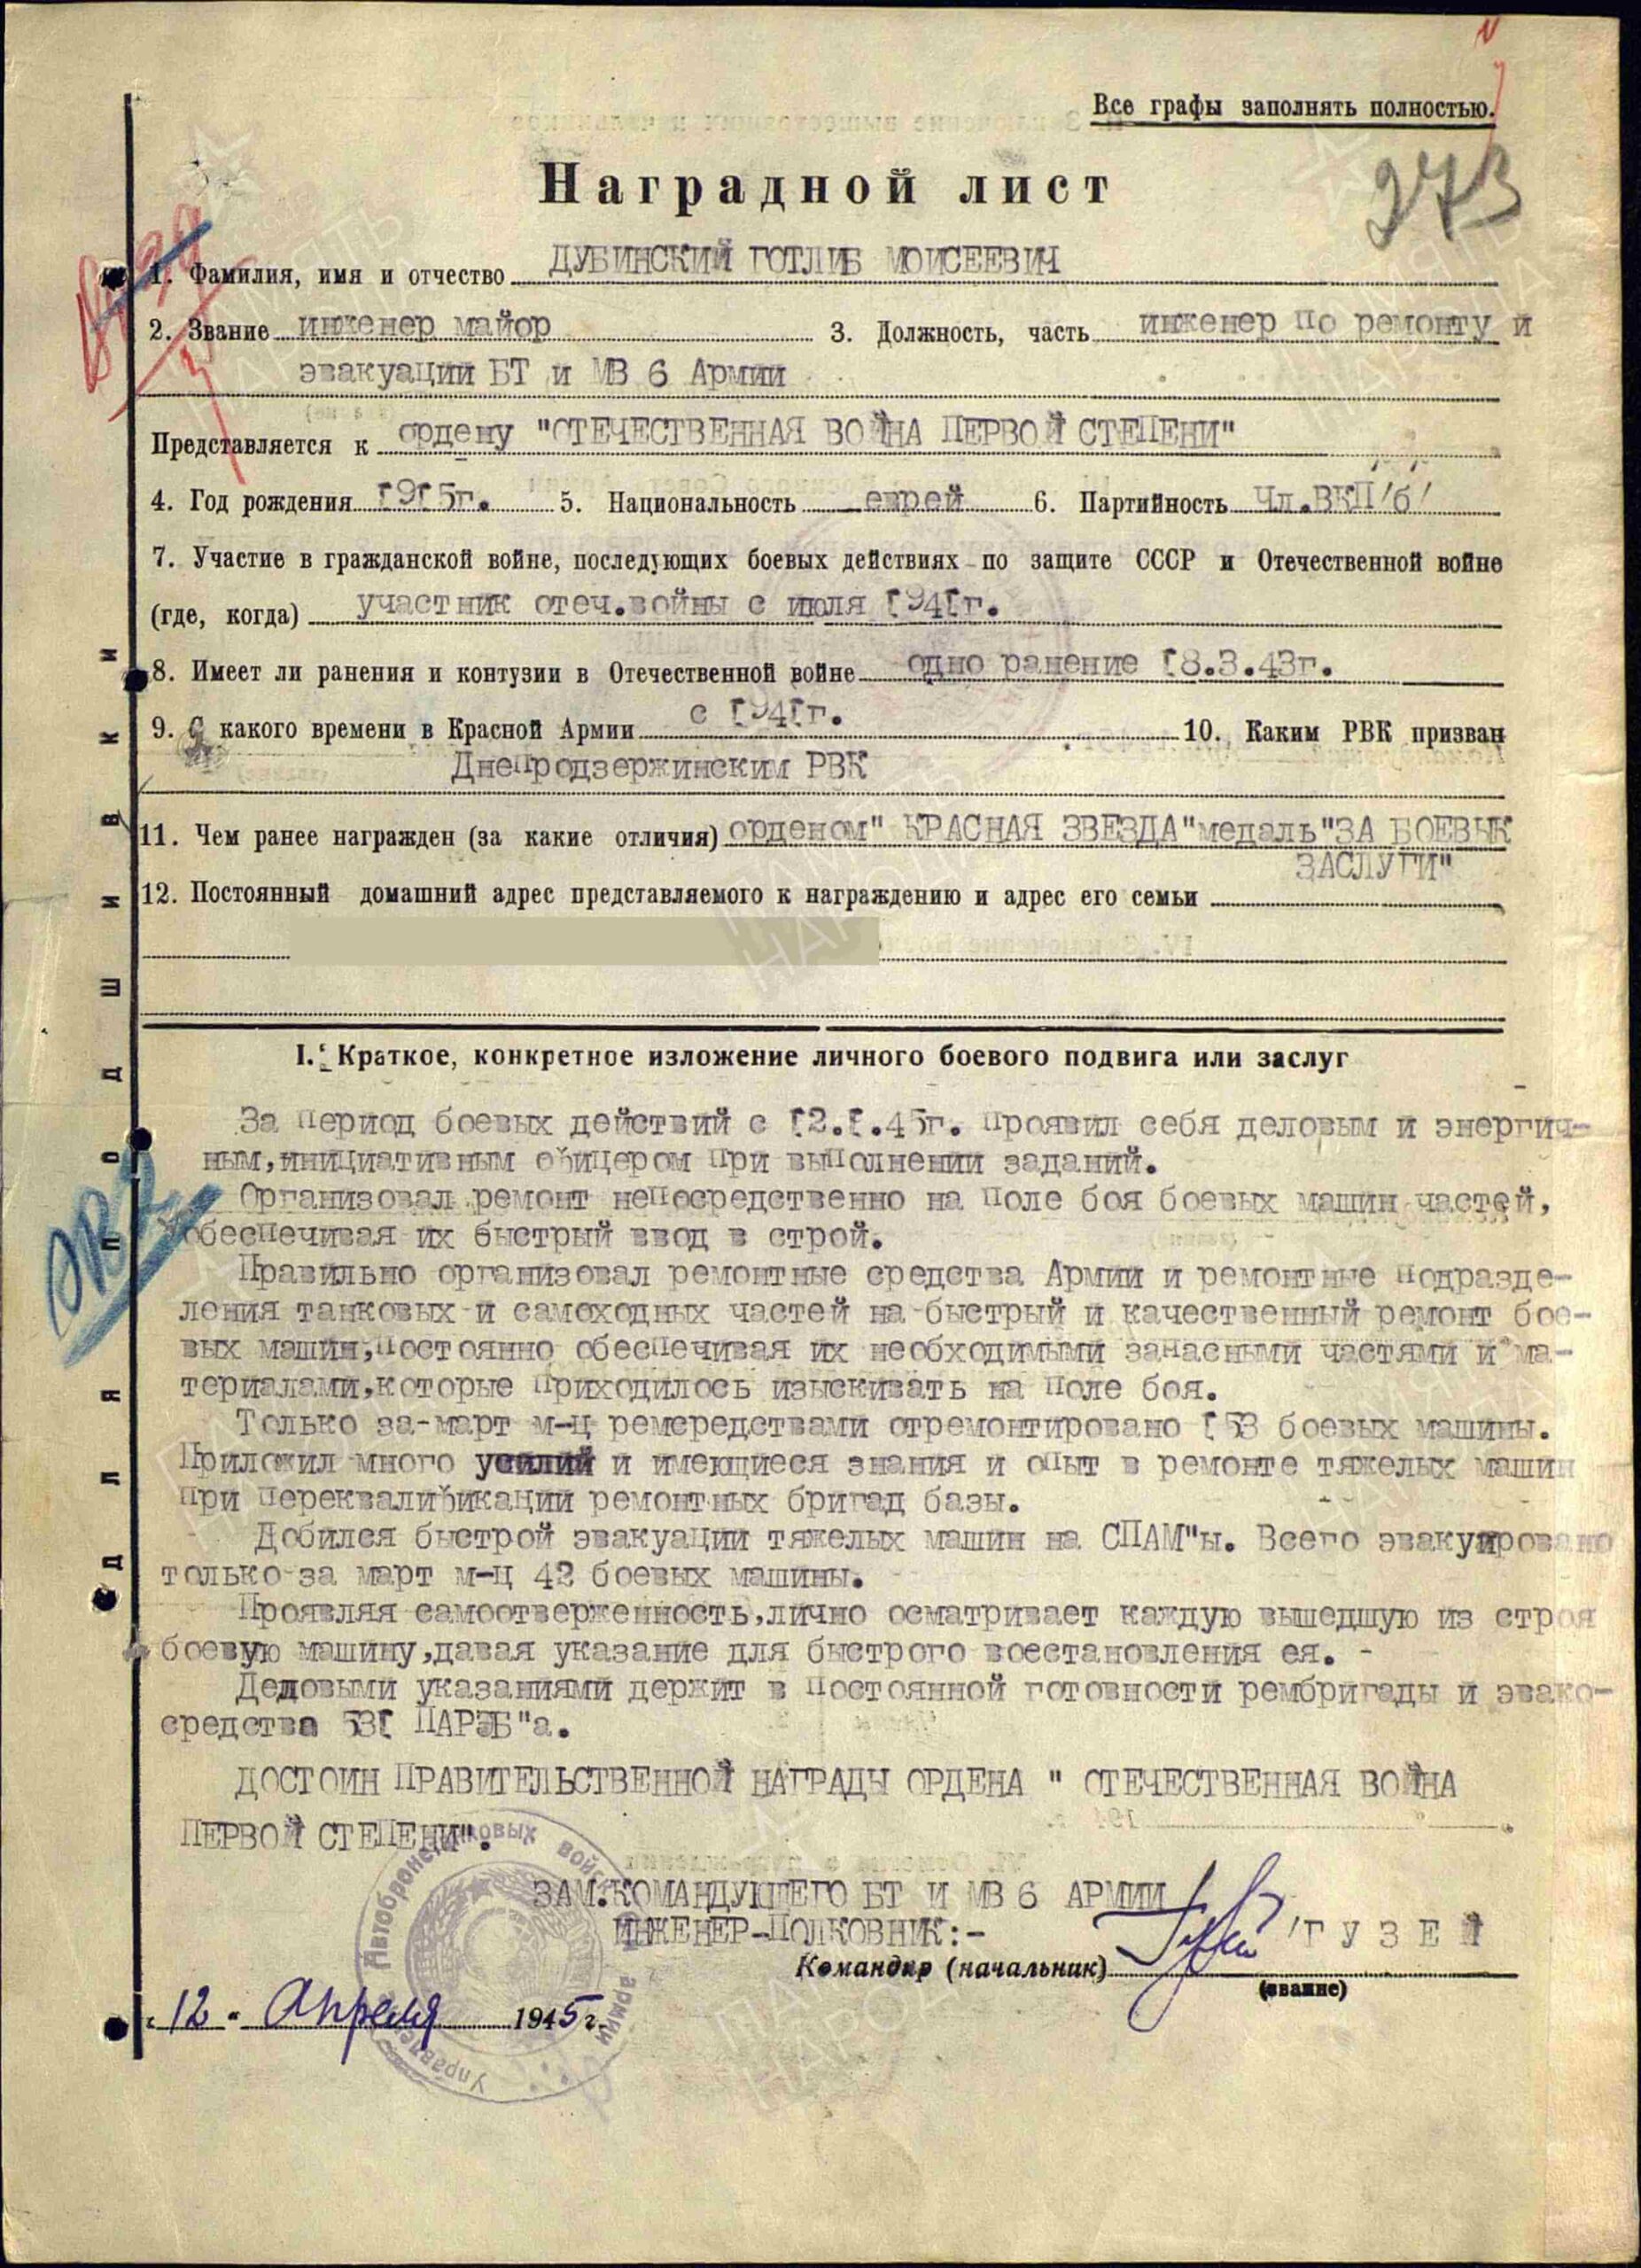 Все графы заполнять полностью.
273
Наградной лист
1. Фамилия, имя и отчество ДУБИНСКИЙ ГОТЛИБ МОИСЕЕВИЧ
2. Звание инженер майор 3. Должность, часть инженер по ремонту и
эвакуации БТ и МВ 6 Армии
Представляется к ордену "ОТЕЧЕСТВЕННАЯ ВОЙНА ПЕРВОЙ СТЕПЕНИ"
4. Год рождения 1915г. 5. Национальность еврей 6. Партийность Чл.ВКП/б/
7. Участие в гражданской войне, последующих боевых действиях по защите СССР и Отечественной войне
(где, когда) участник отеч.войны с июля 1941г.
8. Имеет ли ранения и контузии в Отечественной войне одно ранение 18.3.43г.
9. С какого времени в Красной Армии с 1941г. 10. Каким РВК призван
Днепродзержинским РВК
11. Чем ранее награжден (за какие отличия) орденом" КРАСНАЯ ЗВЕЗДА"медаль"ЗА БОЕВЫЕ
ЗАСЛУГИ"
12. Постоянный домашний адрес представляемого к награждению и адрес его семьи
I. Краткое, конкретное изложение личного боевого подвига или заслуг
За период боевых действий с 12.1.45г. проявил себя деловым и энергич-
ным,инициативным офицером при выполнении заданий.
Организовал ремонт непосредственно на поле боя боевых машин частей,
обеспечивая их быстрый ввод в строй.
Правильно организовал ремонтные средства Армии и ремонтные подразде-
ления танковых и самоходных частей на быстрый и качественный ремонт бое-
вых машин,постоянно обеспечивая их необходимыми запасными частями и ма-
териалами,которые приходилось изыскивать на поле боя.
Только за-март м-ц ремсредствами отремонтировано 153 боевых машины.
Приложил много усилий и имеющиеся знания и опыт в ремонте тяжелых машин
при переквалификации ремонтных бригад базы.
Добился быстрой эвакуации тяжелых машин на СПАМ"ы. Всего эвакуировано
только за март м-ц 42 боевых машины.
Проявляя самоотверженность,лично осматривает каждую вышедшую из строя
боевую машину,давая указание для быстрого восстановления ея. -
Деловыми указаниями держит в постоянной готовности рембригады и эвако-
средства 531 ПАРЭБ"а.
ДОСТОИН ПРАВИТЕЛЬСТВЕННОЙ НАГРАДЫ ОРДЕНА " ОТЕЧЕСТВЕННАЯ ВОЙНА
ПЕРВОЙ СТЕПЕНИ".
ЗАМ.КОМАНДУЮЩЕГО БТ И МВ 6 АРМИИ
ИНЖЕНЕР-ПОЛКОВНИК:- /ГУЗЕЙ
Командир (начальник)
(звание)
"12" Апреля 1945 г.
Для подшивки